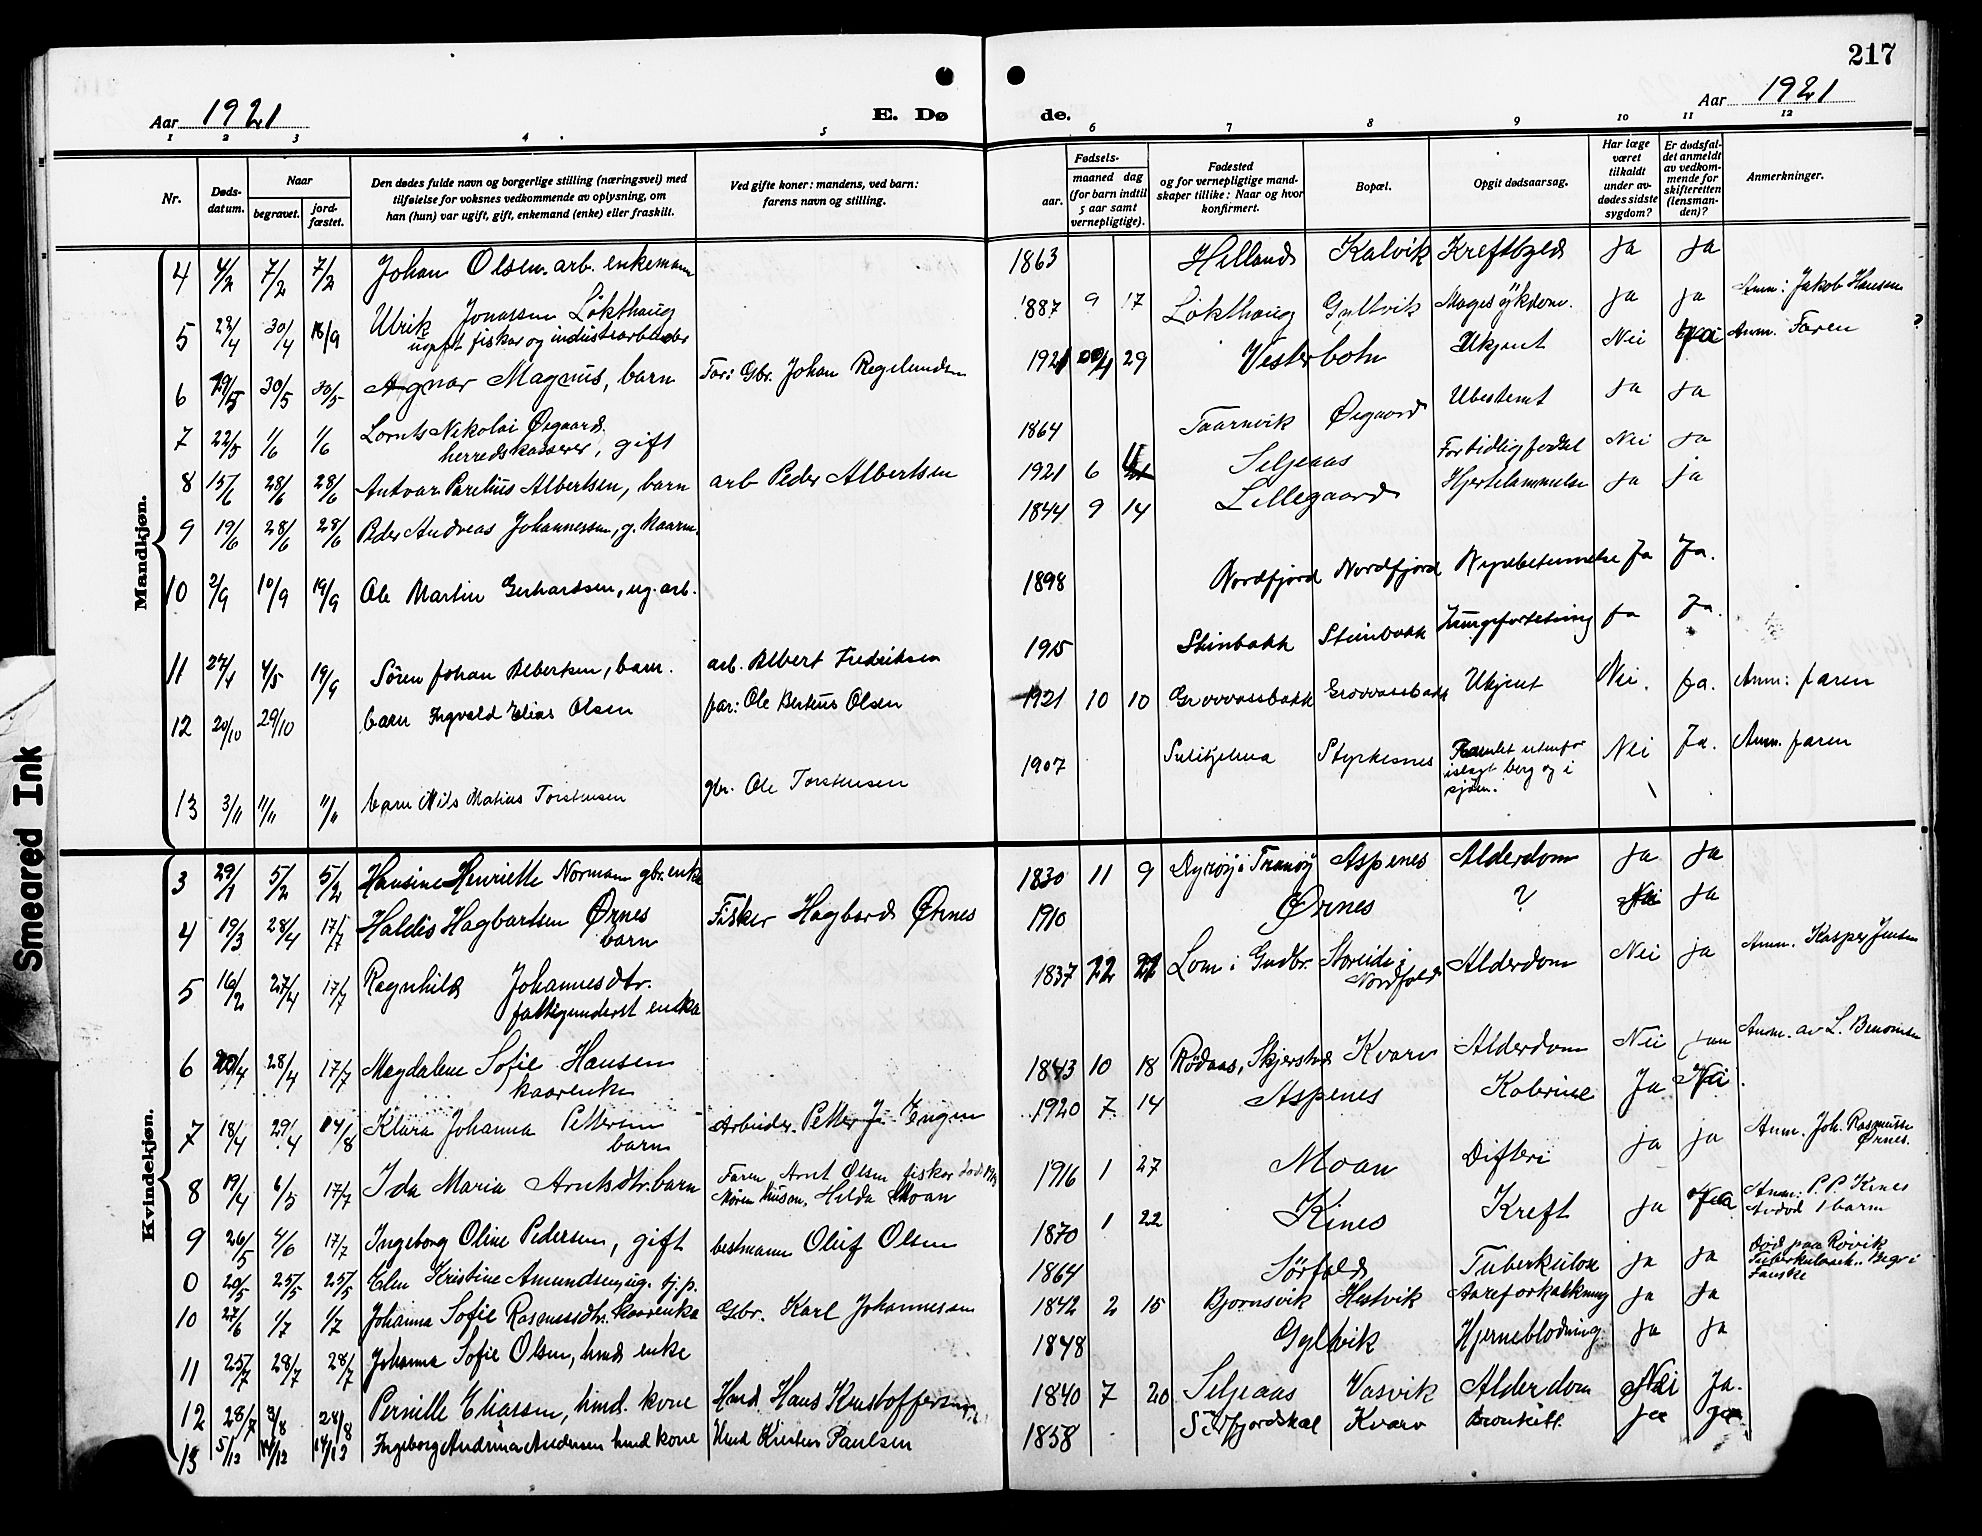 217
Aar 1921
E. Dø
de.
Aar 1921
1 2 3 4 5 6 7 8 9 10 11 12
Nr.
Døds-
datum.
Naar
begravet.
jord-
fæstet.
Den dødes fulde navn og borgerlige stilling (næringsvei) med
tilføielse for voksnes vedkommende av oplysning, om
han (hun) var ugift, gift, enkemand (enke) eller fraskilt.
Ved gifte koner: mandens, ved barn:
farens navn og stilling.
Fødsels-
aar.
maaned dag
(for barn indtil
5 aar samt
vernepligtige).
Fødested
og for vernepligtige mand-
skaper tillike: Naar og hvor
konfirmert.
Bopæl.
Opgit dødsaarsag.
Har læge
været
tilkaldt
under av-
dødes sidste
sygdom?
Er dødsfal-
det anmeldt
av vedkom-
mende for
skifteretten
(lensman-
den)?
Anmerkninger.
Mandkjøn.
4 4/2 7/2 7/2 Johan Olsen arb. enkemann 1863 Helland Kalvik Kreftbyld ja ja
5 23/4 30/4 18/9 Ulrik Jonassen Løkthaug 1887 9 17 Løkthaug Gyltvik Magesykdom. ja ja Anm: Jakob Hansen
ugift fisker og industriarbeider
6 30/5 30/5 Agnar Magnus, barn Far: Gbr. Johan Regelundsen 1921 29 Vesterbotn Ukjent Nei ja Anm. Faren
7 22/5 1/6 1/6 Lornts Nikolai Øvgaard 1864 Taarnvik Øvgaard Ubestemt ja ja
herredskasserer, gift
8 15/6 28/6 28/6 Antvar Parelius Albertsen, barn arb Peder Albertsen 1921 6 11 Seljeaas Fortidlig fødsel Nei ja
9 19/6 28/6 28/6 Peder Andreas Johannessen, g. kaarm. 1844 9 14 Lillegaard Hjertelammelse ja ja
10 2/9 10/9 19/9 Ole Martin Gerhardsen, ug. arb. 1898 Nordfjord Nordfjord Nyrebetennelse Ja Ja.
11 27/4 4/5 19/9 Sören Johan Albertsen, barn. arb. Albert Fredriksen 1915 Steinbakk Steinbakk ja Ja.
12 20/10 29/10 barn Ingvald Elias Olsen far: Ole Berteus Olsen 1921 10 10 Grovvassbakk Grovvassbakk Ukjent Nei. ja. Anm: faren
13 3/11 11/11 11/11 barn Nils Matias Torstensen gbr. Ole Torstensen 1907 Sulitjelma Styrkesnes Ramlet utenfor Nei Ja. Anm. faren
islagt berg og i
sjøen.
Smeared Ink
Kvindekjøn.
3 29/1 5/2 5/2 Hansine Henriette Normann gbr. enke 1830 11 9 Dyrøy i Tranøy Aspenes Alderdom ja ja
4 19/3 28/4 17/7 Haldis Hagbartsen Ørnes Fisker Hagbard Ørnes 1910 Ørnes ? Nei ja
barn
5 16/2 27/4 17/7 Ragnhild Johannesdtr. 1837 22 Lom i Gudbr. Storeide i Alderdom Nei ja Anm. Kasper Jensen
fattigunderst enke Nordfold
6 28/4 17/7 Magdalene Sofie Hansen 1843 10 18 Rødaas, Skjerstad Kvarv Alderdom Nei Anm. av L. Benonisen
kaarenke
7 18/4 29/4 14/8 Klara Johanna Pettersen Arbeider. Petter J. Engen 1920 7 14 Aspenes Kolerine Ja Nei.
barn
8 19/4 6/5 17/7 Ida Maria Arntsdtr. barn Faren Arnt Olsen fisker død 1916 1 27 Moan Difteri ja ja Anm. Joh. Rasmussen
Moren Husm. Hilda Moan Ørnes.
9 26/5 4/6 17/7 Ingeborg Oline Pedersen, gift bestmann Oluf Olsen 1870 1 22 Kines Kreft ja Ja Anm: P. P. Kines
Avdød 1 barn
0 20/5 25/5 25/5 Elen Kristine Amundsen, ug. tj. p. 1864 Sørfold Tuberkulose ja ja Død paa Røvik
Tuberkulosehj. Begr i
Fauske
10 27/6 1/7 1/7 Johanna Sofie Rasmusdtr. kaarenke Gbr. Karl Johannessen 1842 2 15 Bjørnsvik Hestvik Aareforkalkning ja ja
11 25/7 28/7 28/7 Johanna Sofie Olsen, hmd enke 1848 Gyltvik Hjerneblødning. ja ja
12 28/7 3/8 28/8 Pernille Eliassen, hmd. kone Hmd. Hans Kristoffersen 1840 7 20 Seljeaas Vasvik Alderdom Nei Ja.
13 5/12 14/12 14/12 Ingeborg Andrina Andersen hmd kone Hmd Kristen Paulsen 1858 Sørfjordskal Kvarv Bronkitt. ja ja